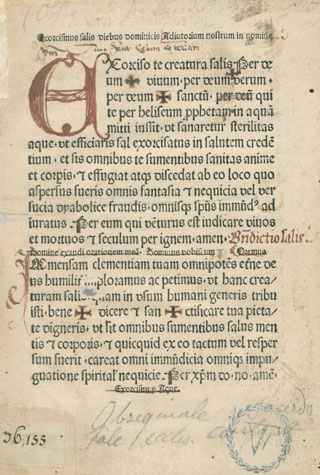 Exorcismus salis diebus dominicis Adiutorium nostrum in nomine
EXorciso te creatura salis: Per de
um ✠ viuum. per deum ✠ verum.
per deum ✠ sanctū. per deū qui
te per heliseum ꝓphetam in aquā
mitti iussit. vt sanaretur sterilitas
aque. vt efficiaris sal exorcisatus in salutem credē
tium. et sis omnibus te sumentibus sanitas anime
et corpis. et effugiat atqʒ discedat ab eo loco quo
aspersus fueris omnis fantasia et nequicia vel ver
sucia dyabolice fraudis. omnisqʒ spūs immūdꝰ ad
iuratus. Per eum qui vēturus est iudicare viuos
et mortuos et seculum per ignem. amen. Bn̄dictio salis
Domine exaudi orationem meā. Dominus vobiscum Oremus
IMmensam clementiam tuam omnipotēs eterne de
us humiliter imploramus ac petimus. vt hanc crea
turam salis quam in vsum humani generis tribu
isti. bene ✠ dicere et san ✠ ctificare tua pieta-
te digneris. vt sit omnibus sumentibus salus men
tis et corporis. et quicquid ex eo tactum vel resper
sum fuerit. careat omni immūdicia omniqʒ impu
gnatione spiritalis nequicie. Per xp̄m do. no. amē.
Exorcismus Aque.
Obsequiale
36,155